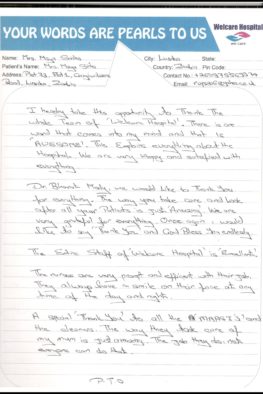 YOUR WORDS ARE PEARLS TO US
Welcare Hospital
WE CARE
Name: Mrs. Maya City: Lusaka State:
Patient's Name: Mrs. Maya Country: Zambia Pin Code:
Address: Plot Contact No:
Road, Lusaka Zambia Email:
I hereby take this opportunity to Thank The
whole Team of 'Welcare Hospital'. There is one
word that comes into my mind and that is
AWESOME!. This Explains everything about the
Hospital. We are very Happy and satisfied with
everything
Dr Bharat Mody, we would like to Thank You
for everything. The way you take care and look
after all your Patients is just Amazing! We are
very grateful for everything. Once again I would
like to say Thank You and God Bless
The Entire Staff of 'Welcare Hospital' is
The nurses are very prompt and efficient with their job.
They always have a smile on their face at any
time of the day and night.
A special 'Thank You' to all the and
the cleaners. The way they take care of
my mum is just amazing. The job they do not
everyone can do that.
P.T.O